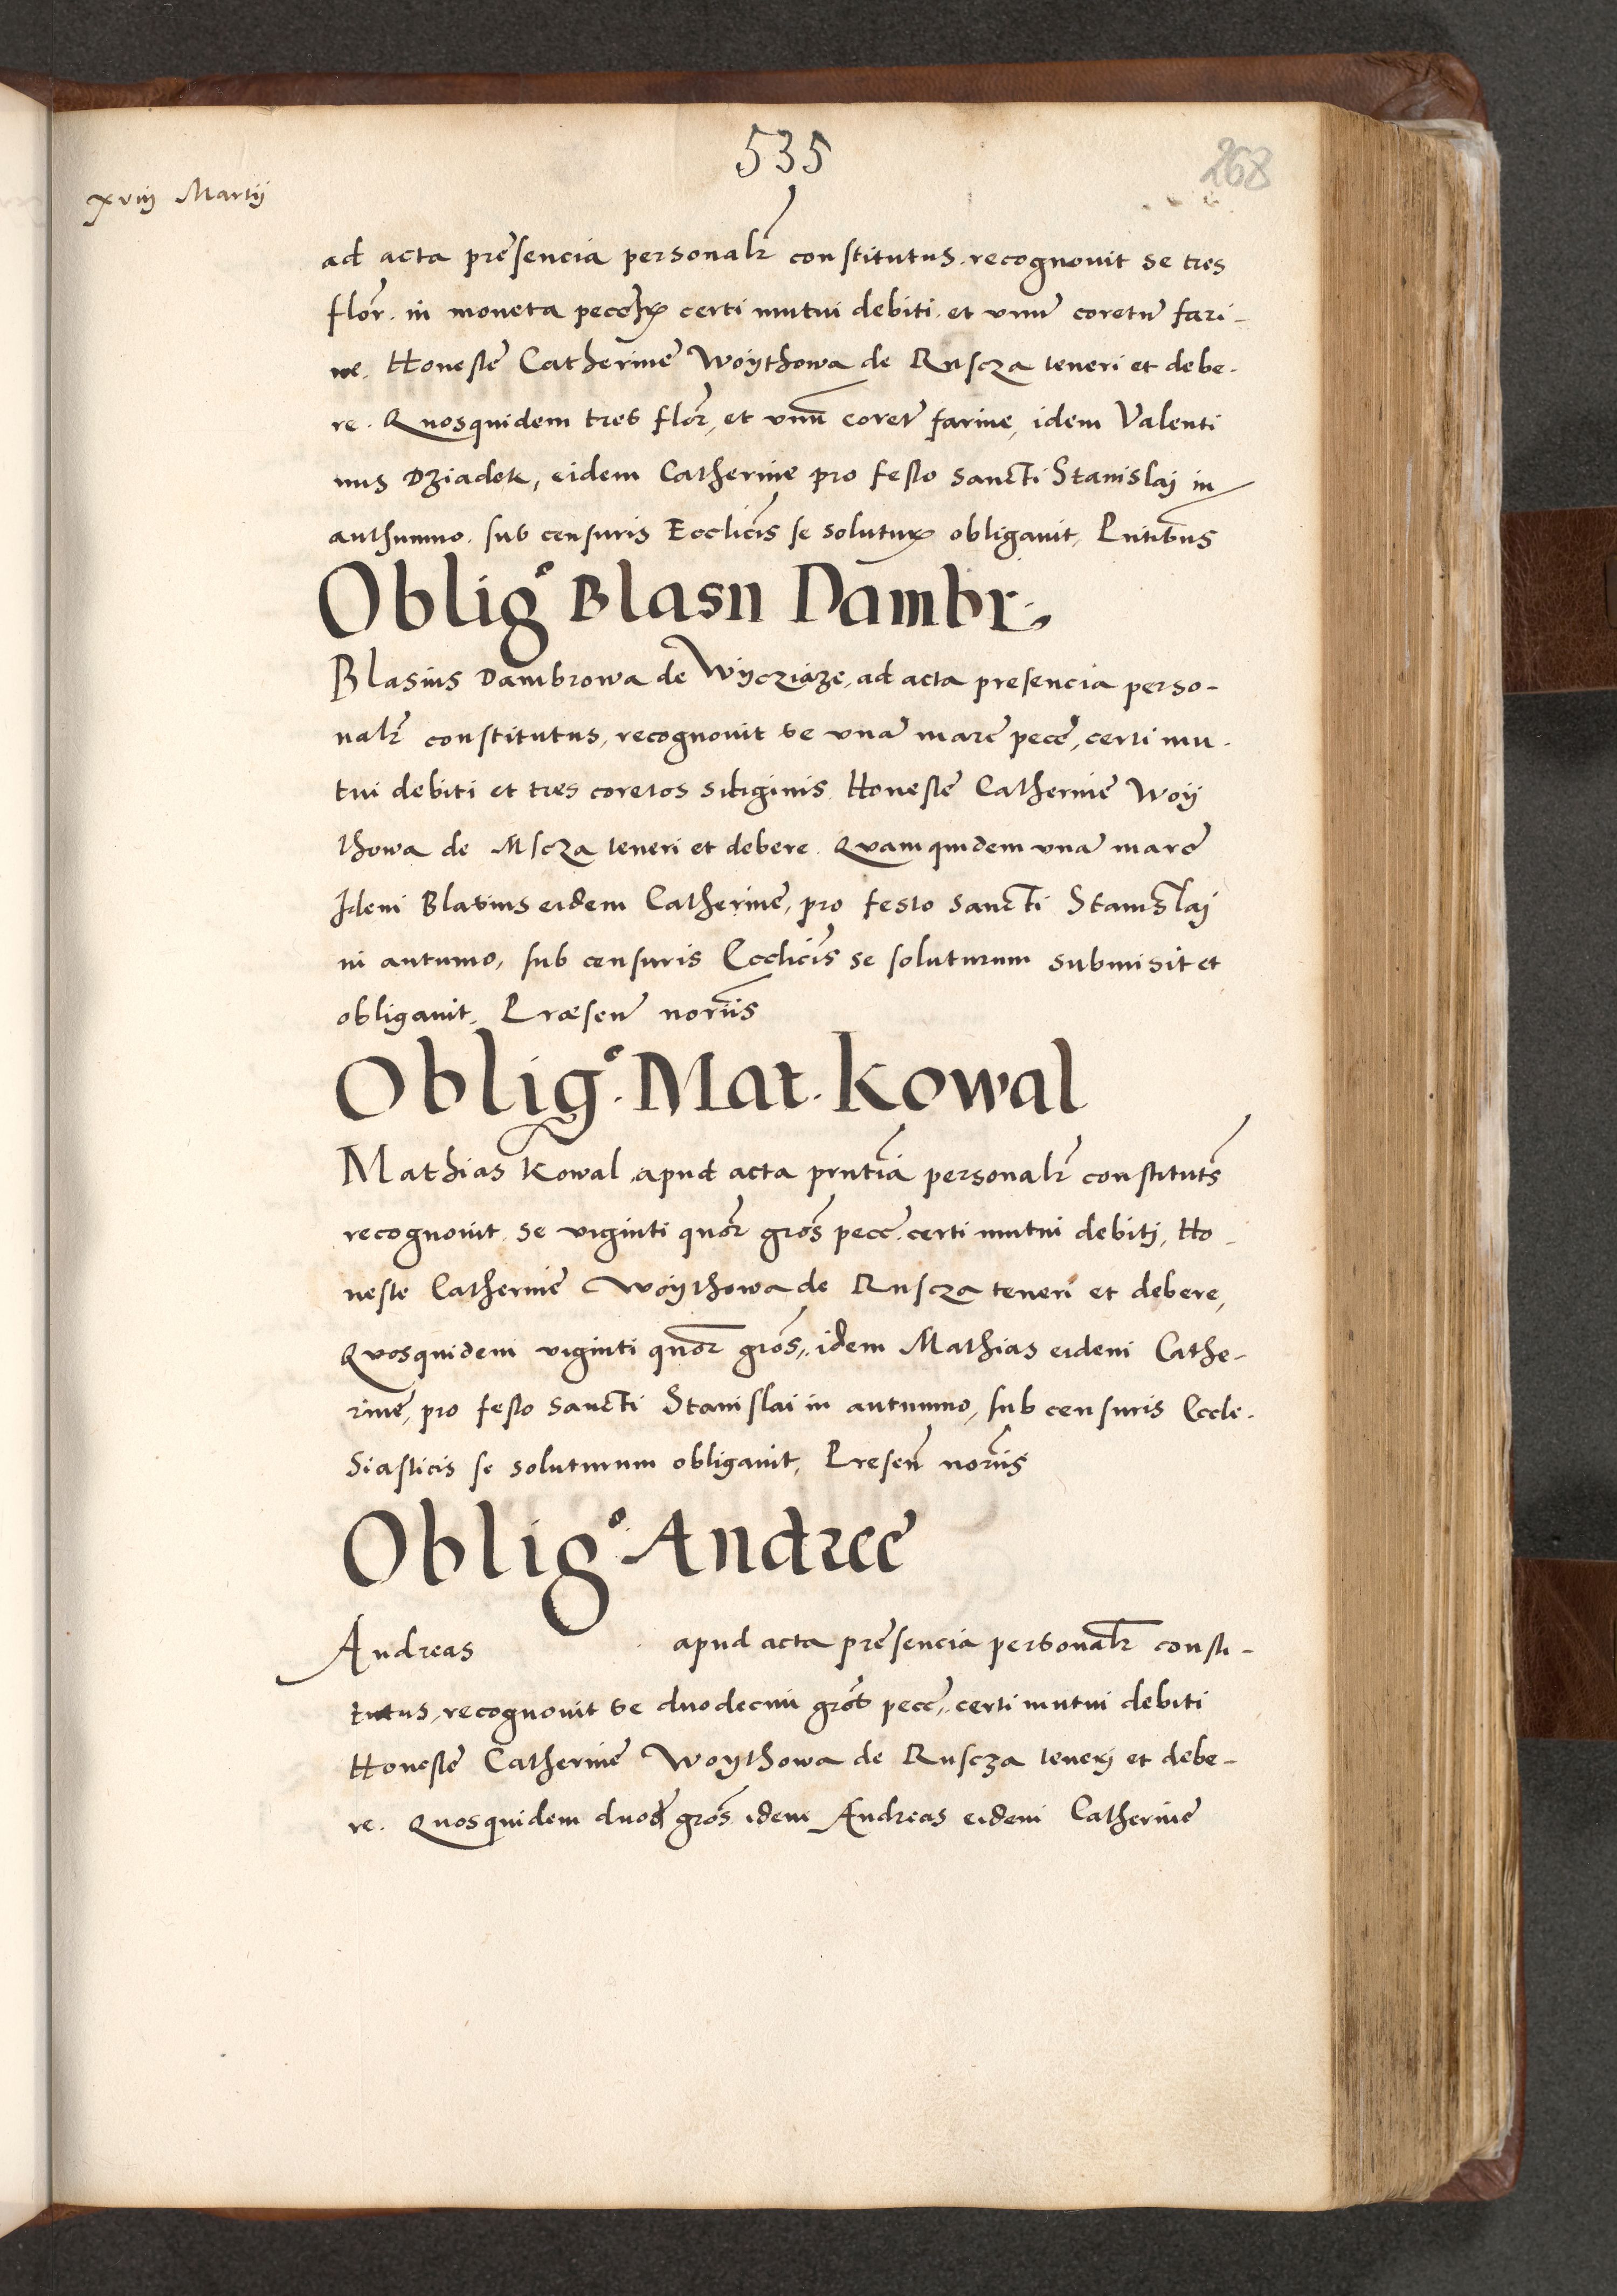 535
268
xviij Martij
ad acta presencia personalr constitutus. recognovit se tres
flor. in moneta certi mutui debiti. et unu coretu fari-
ne. Honeste Catherine Woÿthowa de Ruscza teneri et debe-
re. Quosquidem tres flor, et unu coret farine, idem Valenti
nus Dziadek, eidem Catherine pro festo Sancti Stanislaj in
authumno. sub censuris Ecclicis se solutur obligavit,
Oblig Blasii Dambr.
Blasius Dambrowa de Wÿcziąze, ad acta presencia perso-
nalr constitutus, recognovit se una marc pecc, certi mu-
tui debiti et tres coretos siliginis. Honeste Catherine Woÿ
thowa de teneri et debere. Quamquidem una marc
Idem Blasius eidem Catherine, pro festo Sancti Stanislaj
in autumo, sub censuris Ecclicis se soluturum submisit et
obligavit, Præsen noriis
Oblig. Mat. Kowal
Mathias Kowal, apud acta prntia personalr constituts
recognovit. se viginti quor gros pecc. certi mutui debitj, Ho-
neste Catherine Woÿthowa de Ruscza teneri et debere,
Quosquidem viginti quor gros, idem Mathias eidem Cathe-
rine, pro festo Sancti Stanislai in autumno, sub censuris Eccle-
siasticis se soluturum obligavit, Presen noriis
Oblig. Andree
Andreas apud acta presencia personalr consti-
tutus, recognovit se duodecim gros pecc, certi mutui debiti
Honeste Catherine Woythowa de Ruscza tenerj et debe-
re. Quosquidem duod gros idem Andreas eidem Catherine